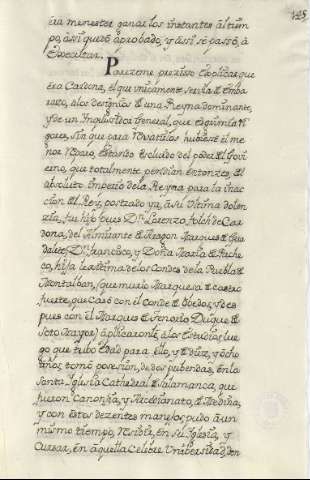 era menester ganar los instantes al tiem-
po, assi quedó aprobado, y assi se passó, à
Executar.
Pareceme preciso Explicar que
era Cardona, el que unicamente servia de emba-
razo, alos designios de una Reyna dominante,
y de un Inquisidor General, que esgrimia Ri-
gores, sin que para evitarlos hubiese el me-
nor Reparo, estando excluido del poder el Govi-
erno, que totalmente pendian entonzes, del
absoluto Imperio dela Reyna, para la inac-
cion del Rey, postrado ya, à su Ultima dolen-
zia, fue hijo pues Dn. Lorenzo Folch de Car-
dona, del Almirante de Aragon Marques de Gua-
dalete, Dn. Francisco, y Doña Maria de Pache-
co, hija lexitima delos Condes dela Puebla de
Montalban, que murio Marquesa de Castro
fuerte, que casó con el Conde de y des-
pues con el Marques de Duque de
Soto Mayor) aplicaronle, alos estudios, lue
go que tubo edad para ello, y de diez, y ocho
años, tomó posesion, de dos prebendas, en la
Santa Iglesia Cathedral de Salamanca, que
fueron Canongia, y Arcedianato, de Medina,
y con estos dezentes manejos, pudo à un
mismo tiempo, Residir, en su Iglesia, y
Cursar, en aquella Celebre Universidad, don